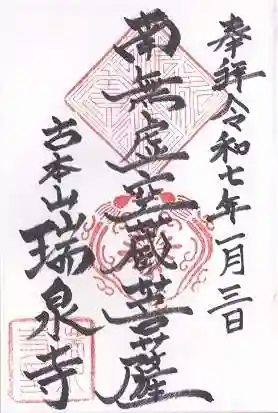 奉拝令和七年一月三日
南無虚空蔵菩薩
古本山瑞泉寺